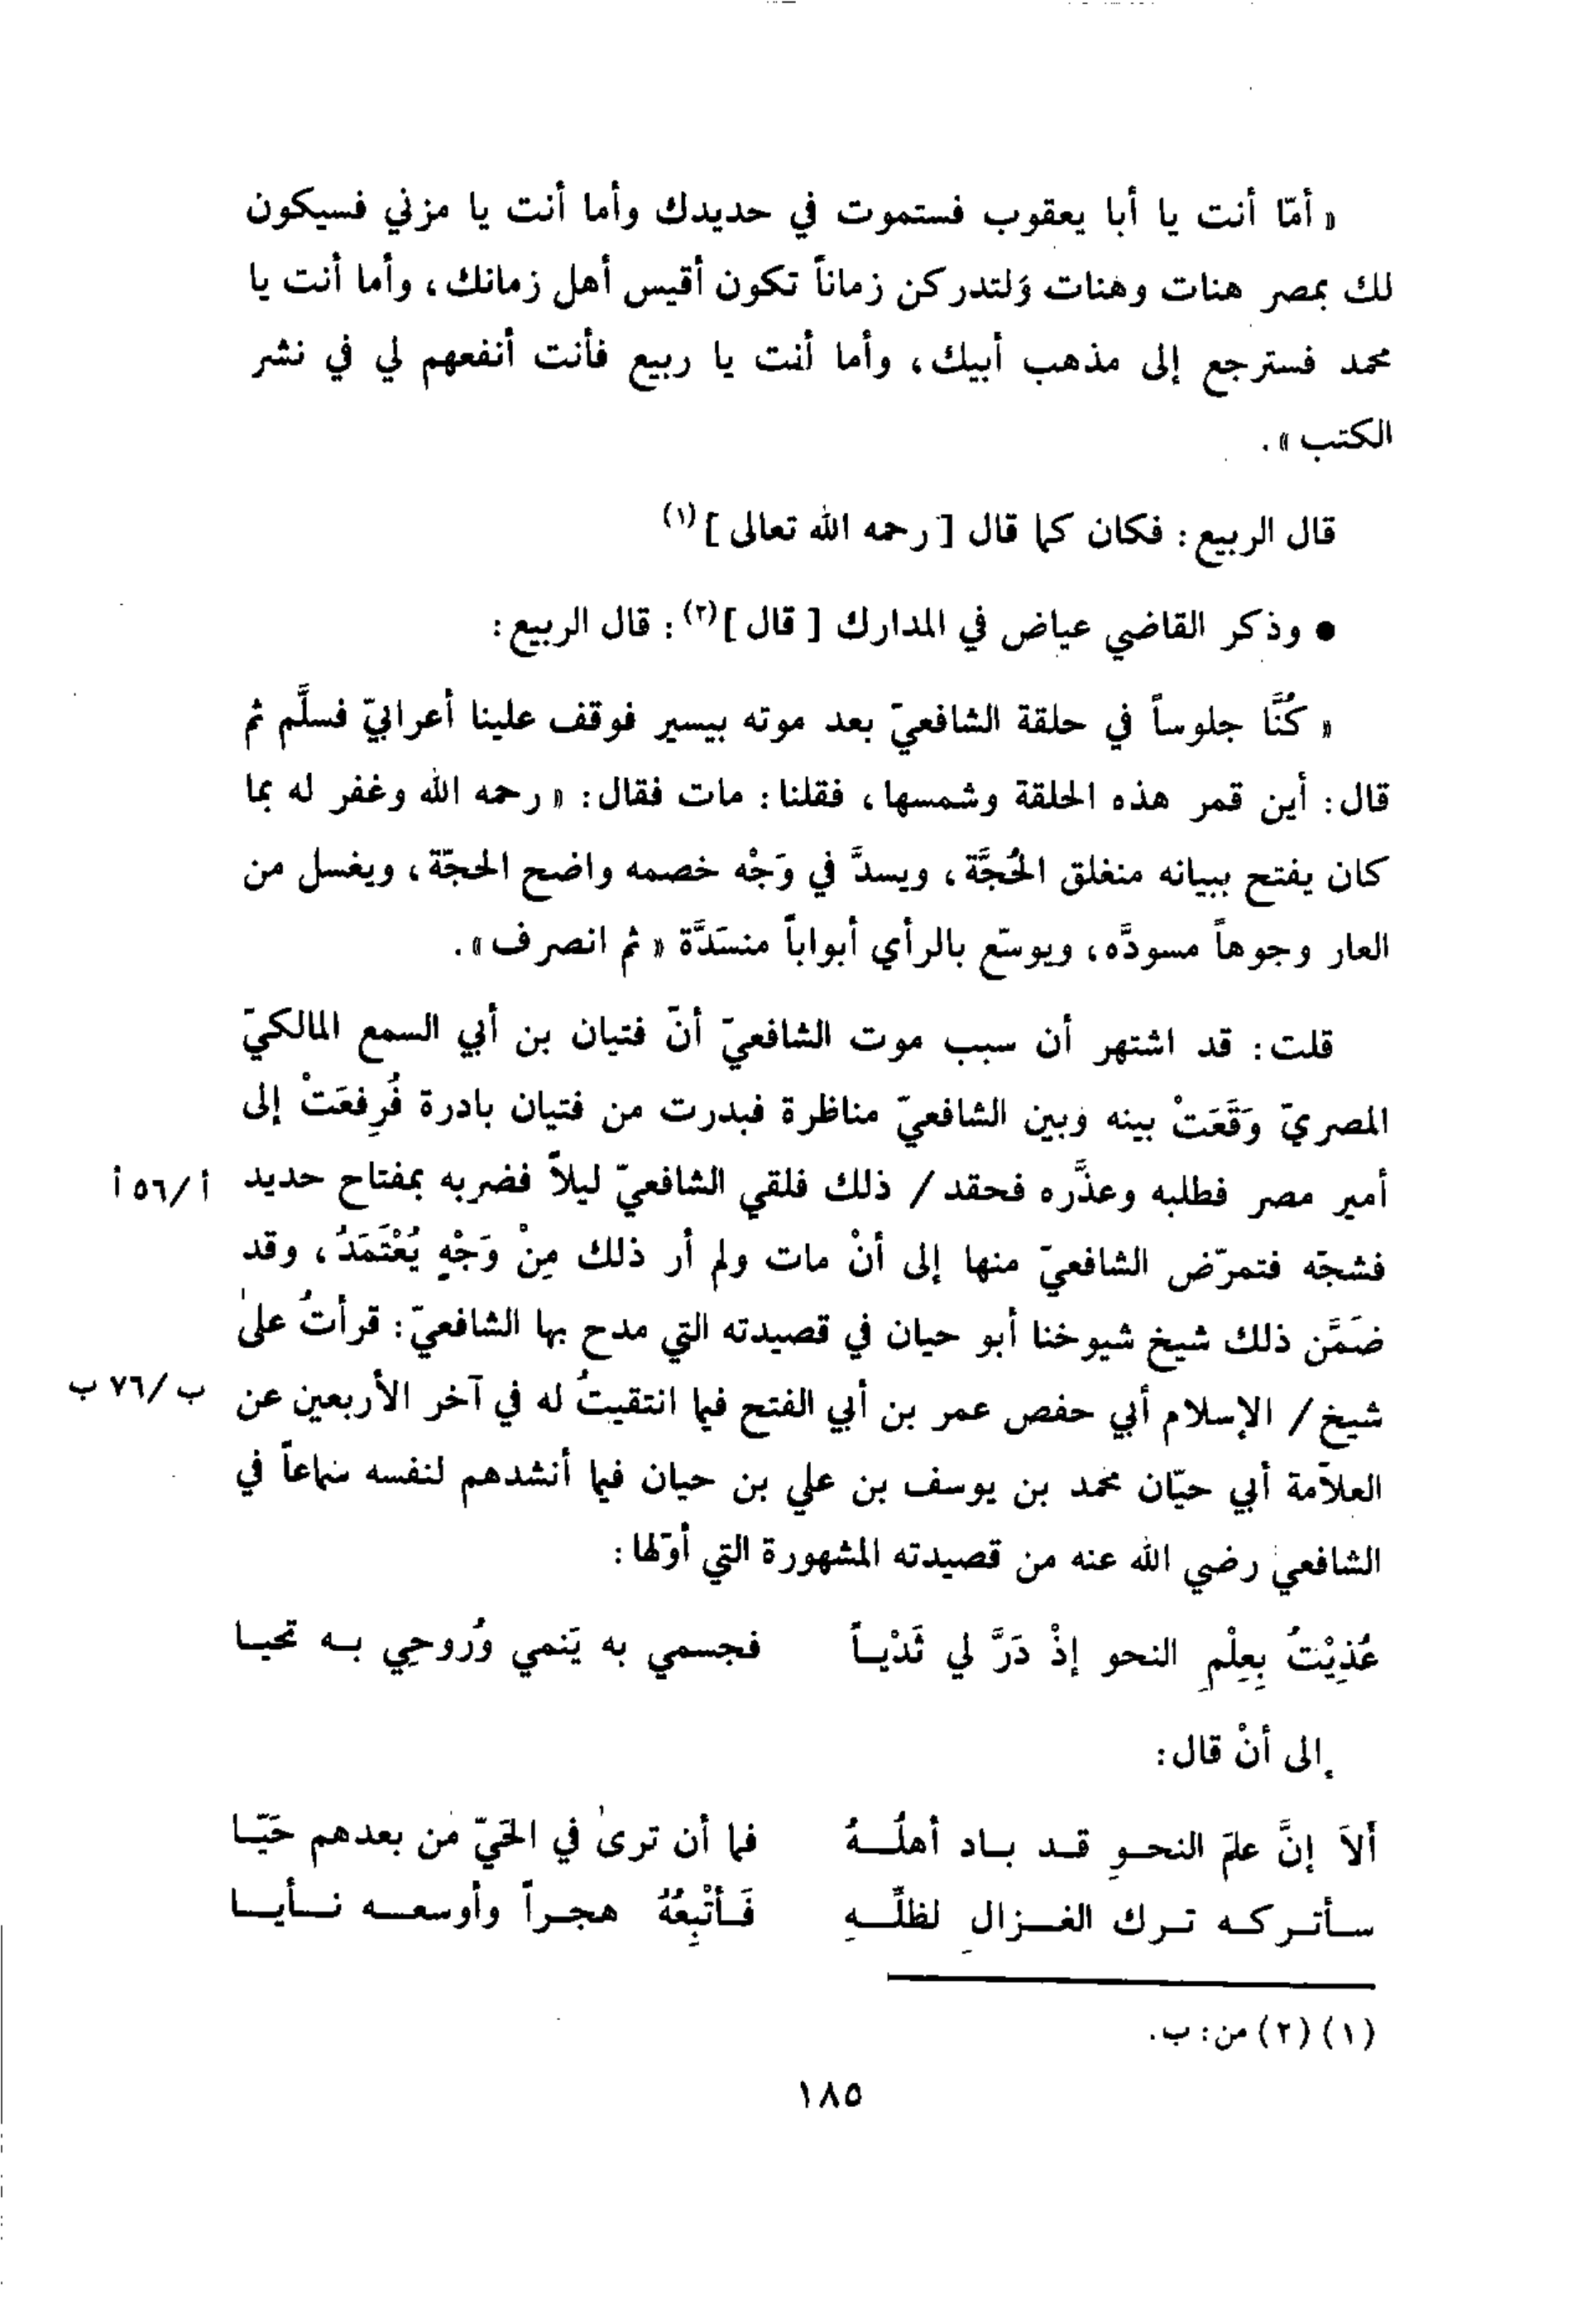 « أمّا أنت يا أبا يعقوب فستموت في حديدك وأما أنت يا مزني فسيكون
لك بمصر هنات وهنات وَلتدركن زماناً تكون أقيس أهل زمانك، وأما أنت يا
محمد فسترجع إلى مذهب أبيك، وأما أنت يا ربيع فأنت أنفعهم لي في نشر
الكتب ».
قال الربيع: فكان كما قال [ رحمه الله تعالى ](١)
● وذكر القاضي عياض في المدارك [ قال ](٢): قال الربيع:
« كُنَّا جلوساً في حلقة الشافعيّ بعد موته بيسير فوقف علينا أعرابيّ فسلَّم ثم
قال: أين قمر هذه الحلقة وشمسها، فقلنا: مات فقال: « رحمه الله وغفر له بما
كان يفتح ببيانه منغلق الحُجَّة، ويسدَّ في وَجْه خصمه واضح الحجّة، ويغسل من
العار وجوهاً مسودَّه، ويوسّع بالرأي أبواباً منسَدَّة « ثم انصرف ».
قلت: قد اشتهر أن سبب موت الشافعيّ أنّ فتيان بن أبي السمع المالكيّ
المصريّ وَقَعَتْ بينه وبين الشافعيّ مناظرة فبدرت من فتيان بادرة فُرِفعَتْ إلى
أمير مصر فطلبه وعذَّره فحقد / ذلك فلقي الشافعيّ ليلاً فضربه بمفتاح حديد أ/٥٦ أ
فشجّه فتمرّض الشافعيّ منها إلى أنْ مات ولم أر ذلك مِنْ وَجْهٍ يُعْتَمَدُ، وقد
ضَمَّن ذلك شيخ شيوخنا أبو حيان في قصيدته التي مدح بها الشافعيّ: قرأتُ علىٰ
شيخ / الإسلام أبي حفص عمر بن أبي الفتح فيما انتقيتُ له في آخر الأربعين عن ب/٧٦ ب
العلاّمة أبي حيّان محمد بن يوسف بن علي بن حيان فيما أنشدهم لنفسه سماعاً في
الشافعي رضي الله عنه من قصيدته المشهورة التي أوّلها:
عُذِيْتُ بِعِلْمِ النحو إذْ دَرَّ لي ثَدْيــاً فجسمي به يَنمي وَروحِي بــه تحيــا
إلى أنْ قال:
أَلاَ إنَّ علمَ النحــوِ قــد بــاد أهلُــهُ فما أن ترىٰ في الحَيّ من بعدهم حَيّــا
ســأتــركــه تــرك الغــزالِ لظلِّــهِ فَــأتْبِعُهُ هجــراً وأوسعــه نــأيــا
(١) (٢) من: ب.
١٨٥